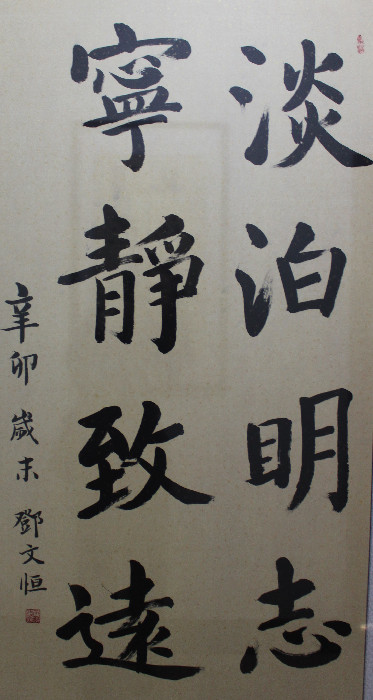 淡泊明志
寧靜致遠
辛卯歲末 鄧文恒